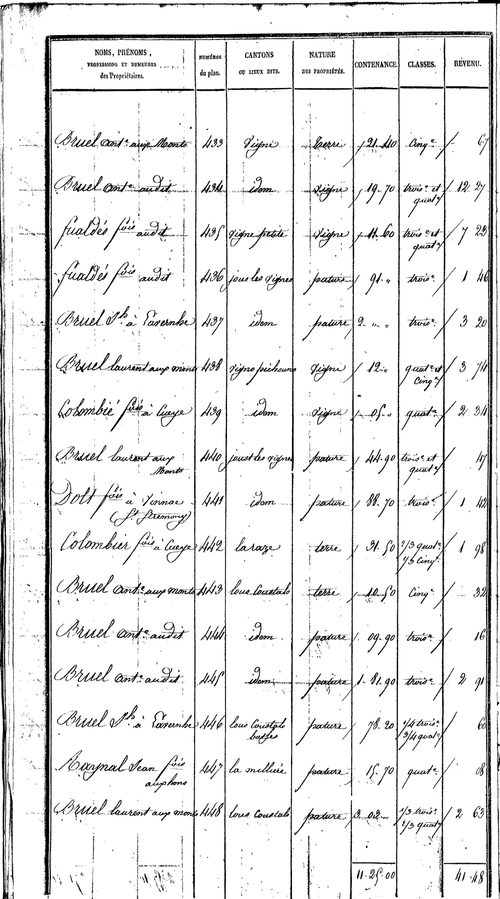 NOMS, PRÉNOMS, PROFESSIONS ET DEMEURES des Propriétaires. NUMÉROS du plan. CANTONS OU LIEUX DITS. NATURE DES PROPRIÉTÉS. CONTENANCE. CLASSES. REVENU.
Bruel ant.e aux Monts 433 Vigne terre 21.40 Cinq.e 67
Bruel ant.e audit 434 idem Vigne 19.70 trois.e et quat.e 12 27
fualdés fois audit 435 Vigne petite Vigne 11.60 trois.e et quat.e 7 23
fualdés fois audit 436 sous les Vignes pature 91 " trois.e 1 46
Bruel à 437 idem pature 2 " " trois.e 3 20
Bruel laurent aux monts 438 Vigne Vigne 12 " quat.e et Cinq.e 3 74
Colombié fois à 439 idem Vigne 05 " quat.e 2 34
Bruel laurent aux Monts 440 les Vignes pature 44.90 trois.e et quat.e 47
fois à 441 idem pature 88.70 trois.e 1 42
Colombier fois à 442 laraze terre 31.50 2/3 quat.e 1/3 Cinq.e 1 98
Bruel ant.e aux monts 443 lous Coustals terre 10.50 Cinq.e 32
Bruel ant.e audit 444 idem pature 09.90 trois.e 16
Bruel ant.e audit 445 idem pature 1.81.90 trois.e 2 91
Bruel à 446 lous Coustals pature 78.20 1/4 trois.e 3/4 quat.e 60
Raynal Jean fois 447 la pature 15.70 quat.e 08
Bruel laurent aux monts 448 lous Coustals pature 3.02 1/3 trois.e 2/3 quat.e 2 63
11.25.00 41.48